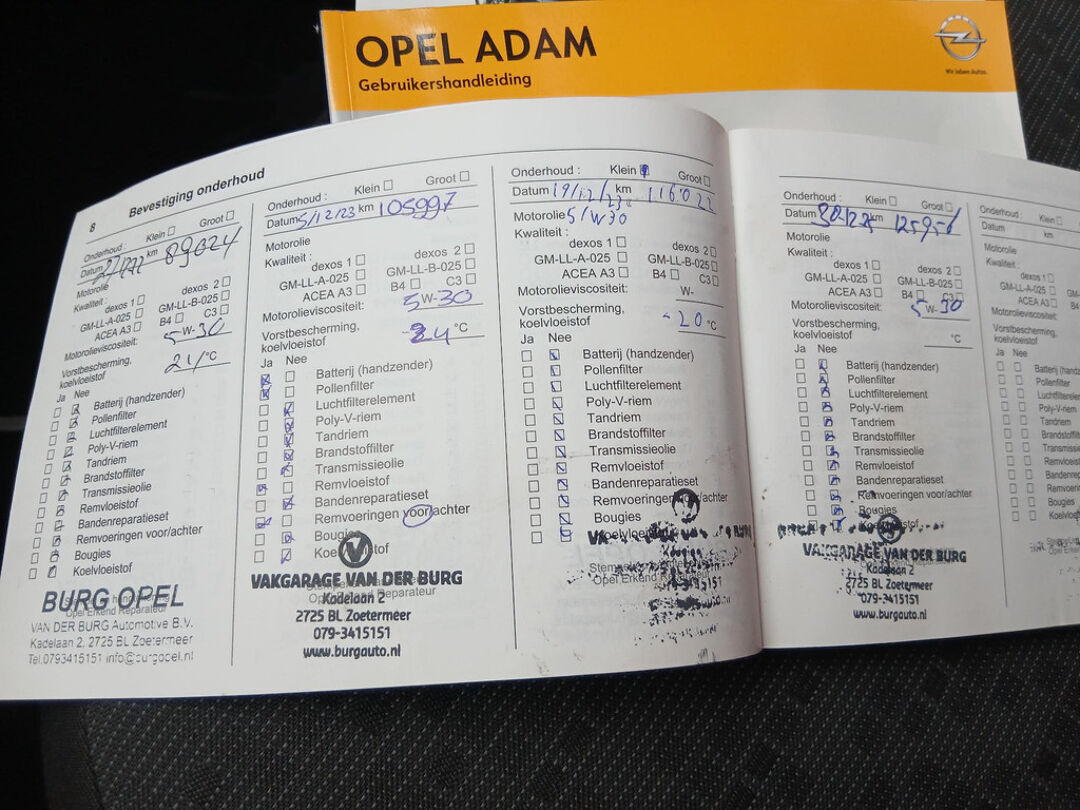 OPEL ADAM
Gebruikershandleiding
Wir leben Autos.
8 Bevestiging onderhoud
Onderhoud : Klein Groot
Datum km 89024
Motorolie
Kwaliteit : dexos 1 dexos 2
GM-LL-A-025 GM-LL-B-025
ACEA A3 B4 C3
Motorolieviscositeit: 5W-30
Vorstbescherming,
koelvloeistof 21 °C
Ja Nee
Batterij (handzender)
Pollenfilter
Luchtfilterelement
Poly-V-riem
Tandriem
Brandstoffilter
Transmissieolie
Remvloeistof
Bandenreparatieset
Remvoeringen voor/achter
Bougies
Koelvloeistof
BURG OPEL
Opel Erkend Reparateur
VAN DER BURG Automotive B.V.
Kadelaan 2, 2725 BL Zoetermeer
Tel.0793415151 info@burgopel.nl
Onderhoud : Klein Groot
Datum 5/12/23 km 105997
Motorolie
Kwaliteit :
dexos 1 dexos 2
GM-LL-A-025 GM-LL-B-025
ACEA A3 B4 C3
Motorolieviscositeit: 5W-30
Vorstbescherming,
koelvloeistof -24 °C
Ja Nee
Batterij (handzender)
Pollenfilter
Luchtfilterelement
Poly-V-riem
Tandriem
Brandstoffilter
Transmissieolie
Remvloeistof
Bandenreparatieset
Remvoeringen voor/achter
Bougies
Koelvloeistof
VAKGARAGE VAN DER BURG
Kadelaan 2
Opel Erkend Reparateur
2725 BL Zoetermeer
079-3415151
www.burgauto.nl
Onderhoud : Klein Groot
Datum 19/12/23 km 116022
Motorolie 5/W30
Kwaliteit :
dexos 1 dexos 2
GM-LL-A-025 GM-LL-B-025
ACEA A3 B4 C3
Motorolieviscositeit: W-
Vorstbescherming,
koelvloeistof -20 °C
Ja Nee
Batterij (handzender)
Pollenfilter
Luchtfilterelement
Poly-V-riem
Tandriem
Brandstoffilter
Transmissieolie
Remvloeistof
Bandenreparatieset
Remvoeringen voor/achter
Bougies
Koelvloeistof
Opel Erkend Reparateur
Onderhoud : Klein Groot
Datum km 125951
Motorolie
Kwaliteit :
dexos 1 dexos 2
GM-LL-A-025 GM-LL-B-025
ACEA A3 B4 C3
Motorolieviscositeit: 5W-30
Vorstbescherming,
koelvloeistof °C
Ja Nee
Batterij (handzender)
Pollenfilter
Luchtfilterelement
Poly-V-riem
Tandriem
Brandstoffilter
Transmissieolie
Remvloeistof
Bandenreparatieset
Remvoeringen voor/achter
Bougies
Koelvloeistof
VAKGARAGE VAN DER BURG
Kadelaan 2
2725 BL Zoetermeer
079-3415151
www.burgauto.nl
Onderhoud : Klein
Datum km
Motorolie
Kwaliteit :
dexos 1
GM-LL-A-025
ACEA A3
Motorolieviscositeit:
Vorstbescherming,
koelvloeistof
Ja Nee
Pollenfilter
Poly-V-riem
Tandriem
Bougies